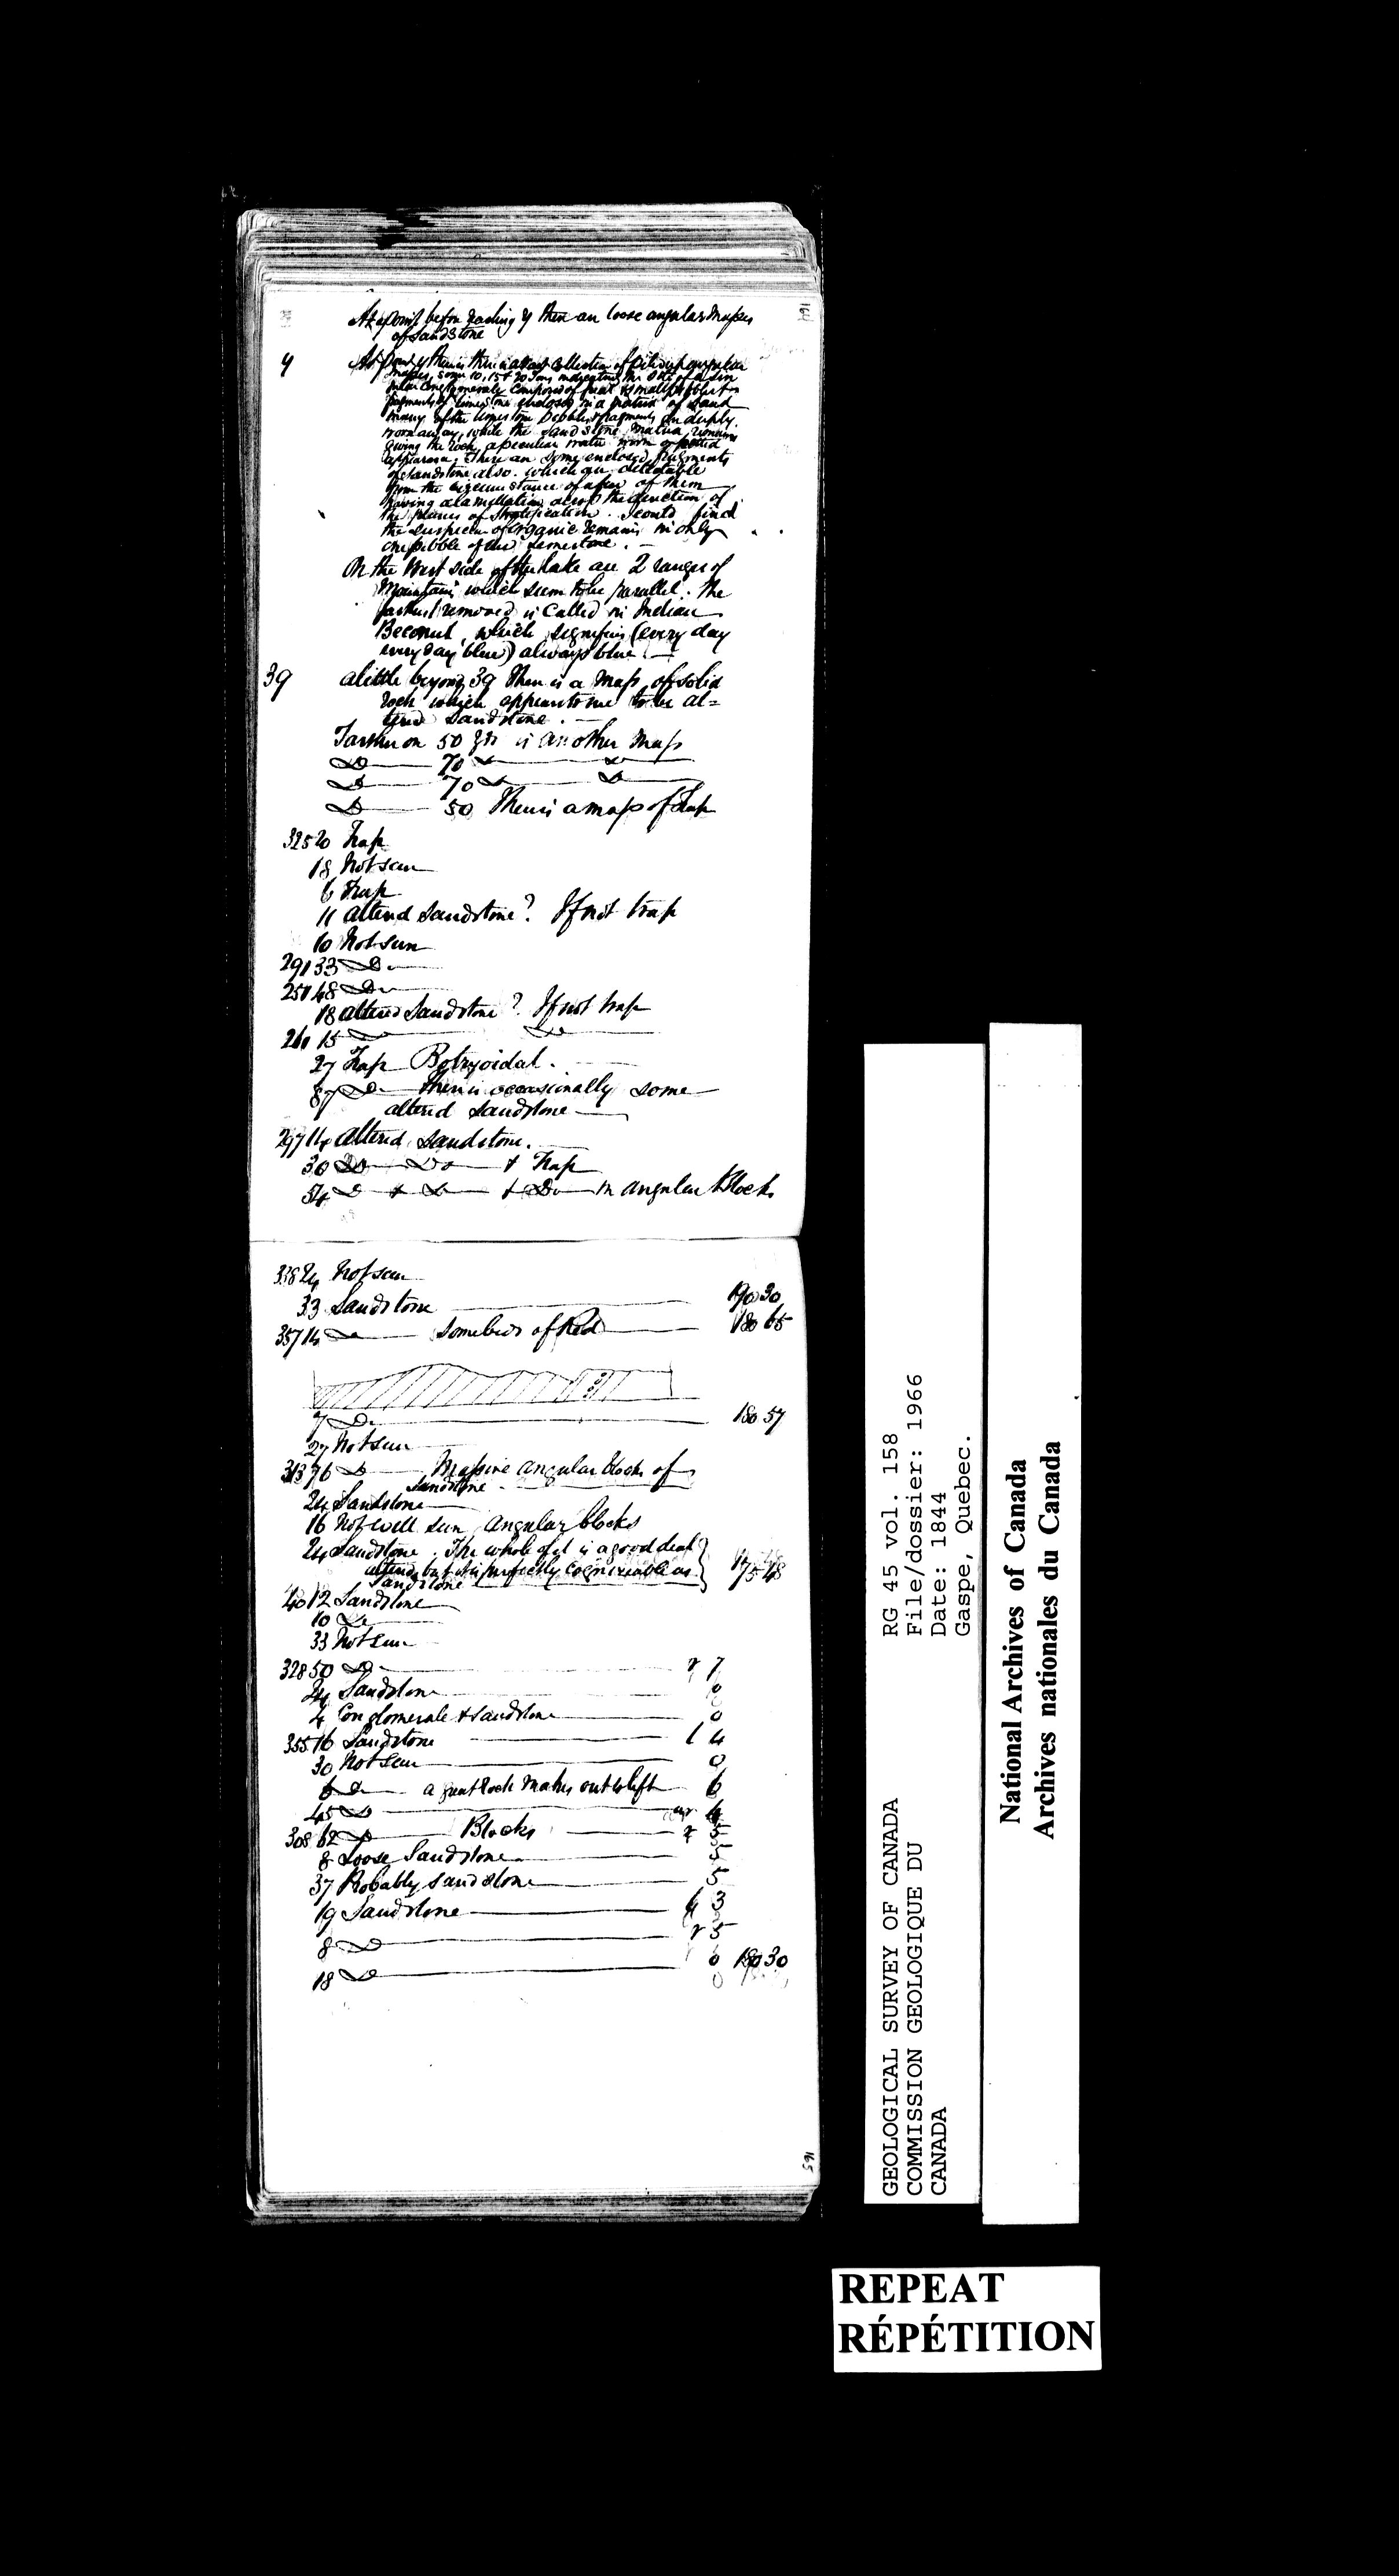 At a point before reaching y there are loose angular masses
of sandstone
y At point y there is a collection of
masses, some 10, 15 & 20 tons indicating the site of a
conglomerate composed of great & small
fragments of limestone enclosed in a matrix of sand
many of the limestone pebbles & fragments are deeply
worn away, while the sandstone matrix remains
giving the rock a peculiar water worn or
appearance. There are some enclosed fragments
of sandstone also which are detectable
from the circumstance of a few of them
having a lamillation across the direction of
the planes of stratification. I could find
the suspicion of organic remains in only
one pebble of the limestone. —
On the West side of the lake are 2 ranges of
Mountains which seem to be parallel. The
farthest removed is called in Indian
which signifies (every day
every day blue) always blue. —
39 a little beyond 39 There is a mass of solid
rock which appears to me to be al=
tered sandstone. —
Farther on 50 yds is another mass
Do — 70 Do — Do
Do — 70 Do — Do
Do — 50 There is a mass of trap
325 20 Trap
18 Not seen
6 Trap
11 altered sandstone? If not trap
10 Not seen
291 33 Do —
251 48 Do —
18 altered sandstone? If not trap
260 15 Do — Do —
27 Trap Botryoidal. —
87 Do — there is occasionally some
altered sandstone —
297 14 altered sandstone.
30 Do — Do — & Trap
54 Do & Do — & Do — in angular blocks
338 24 Not seen
33 Sandstone — 190 30
357 14 Do — some beds of Red — 180 65
7 Do — 180 57
27 Not seen
313 76 Do — Massive angular blocks of
Sandstone
24 Sandstone —
16 Not well seen angular blocks
24 Sandstone. The whole of it is a good deal
altered but it is perfectly cognizable as 175 48
Sandstone
40 12 Sandstone
10 Do —
33 Not seen
328 50 Do — r 7
24 Sandstone — 0
4 Conglomerate & sandstone — 0
355 16 Sandstone — l 4
30 Not seen — 0
6 Do — a great rock makes out to left — 6
45 Do — 4
308 62 Do — Blocks — r 5
8 Loose Sandstone — 5
37 Probably sandstone — 5
19 Sandstone — 3
8 Do — r 5
18 Do — 0 180 30
165
RG 45 vol. 158
File/dossier: 1966
Date: 1844
Gaspe, Quebec.
GEOLOGICAL SURVEY OF CANADA
COMMISSION GEOLOGIQUE DU
CANADA
National Archives of Canada
Archives nationales du Canada
REPEAT
RÉPÉTITION